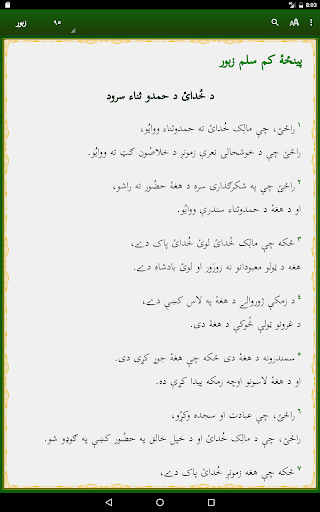 8:03
زبور ۹۵ AA
پینځۀ کم سلم زبور
د خُدائ د حمدو ثناء سرود
۱ راځئ، چې مالِک خُدائ ته حمدوثناء ووایُو،
راځئ، چې د خوشحالئ نعرې زمونږ د خلاصُون ګټ ته ووایُو.
۲ راځئ، چې په شُکرګذارئ سره د هغۀ حضُور ته راشو،
او د هغۀ حمدوثناء سندرې ووایُو.
۳ ځکه چې مالِک خُدائ لوئ خُدائ پاک دے،
هغه د ټولو معبودانو نه زورَور او لوئ بادشاه دے.
۴ د زمکې ژوروالے د هغۀ په لاس کښې دے،
د غرونو ټولې څوکې د هغۀ دی.
۵ سمندرونه د هغۀ دی ځکه چې هغۀ جوړ کړی دی.
او د هغۀ لاسونو اوچه زمکه پیدا کړې ده.
۶ راځئ، چې عبادت او سجده وکړو،
راځئ، چې د مالِک خُدائ او د خپل خالق په حضُور کښې په ګوډو شو.
۷ ځکه چې هغه زمونږ خُدائ پاک دے،